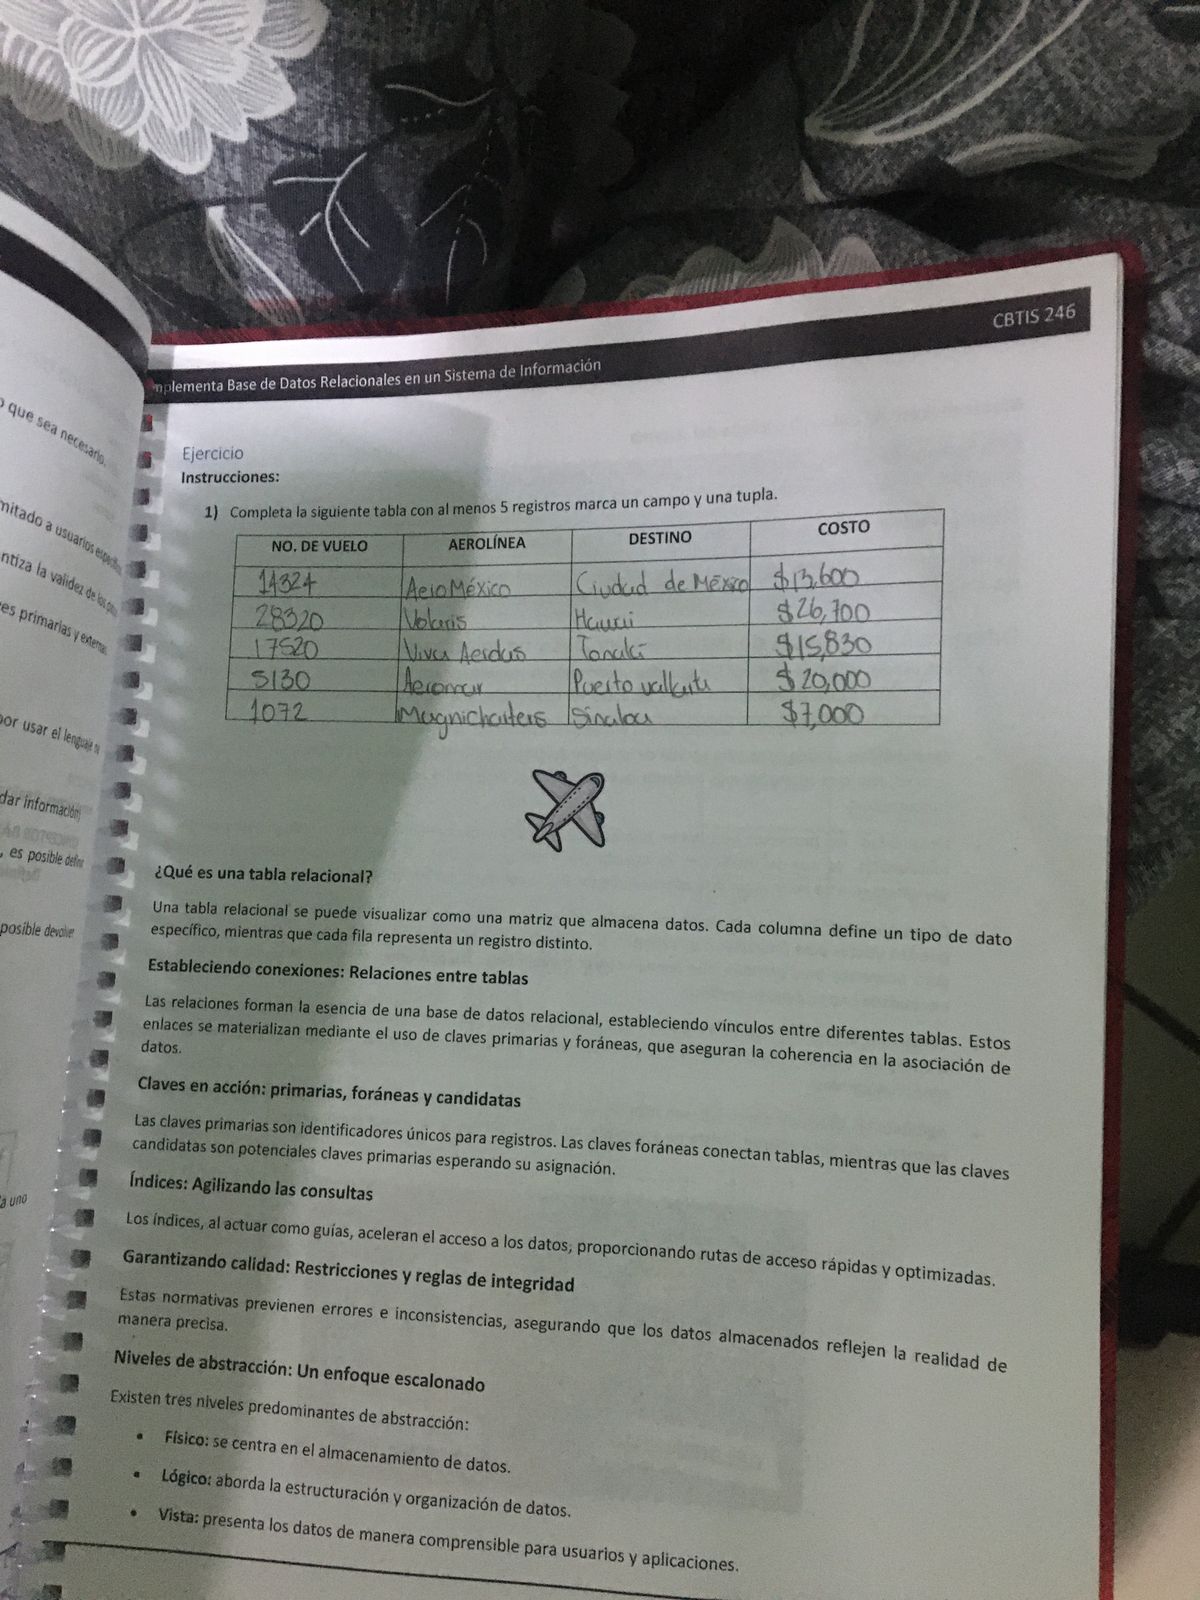 CBTIS 246
mplementa Base de Datos Relacionales en un Sistema de Información
o que sea necesario.
mitado a usuarios específicos
ntiza la validez de los
es primarias y externas
por usar el lenguaje
dar información
, es posible
posible devolver
a uno
Ejercicio
Instrucciones:
1) Completa la siguiente tabla con al menos 5 registros marca un campo y una tupla.
NO. DE VUELO AEROLÍNEA DESTINO COSTO
14324 AeroMéxico Ciudad de México $13,600
28320 Volaris Hawii $26,700
17520 Viva $15,830
5130 Aeromar Puerto vallarta $20,000
1072 Magnicharters Sinaloa $7,000
¿Qué es una tabla relacional?
Una tabla relacional se puede visualizar como una matriz que almacena datos. Cada columna define un tipo de dato
específico, mientras que cada fila representa un registro distinto.
Estableciendo conexiones: Relaciones entre tablas
Las relaciones forman la esencia de una base de datos relacional, estableciendo vínculos entre diferentes tablas. Estos
enlaces se materializan mediante el uso de claves primarias y foráneas, que aseguran la coherencia en la asociación de
datos.
Claves en acción: primarias, foráneas y candidatas
Las claves primarias son identificadores únicos para registros. Las claves foráneas conectan tablas, mientras que las claves
candidatas son potenciales claves primarias esperando su asignación.
Índices: Agilizando las consultas
Los índices, al actuar como guías, aceleran el acceso a los datos, proporcionando rutas de acceso rápidas y optimizadas.
Garantizando calidad: Restricciones y reglas de integridad
Estas normativas previenen errores e inconsistencias, asegurando que los datos almacenados reflejen la realidad de
manera precisa.
Niveles de abstracción: Un enfoque escalonado
Existen tres niveles predominantes de abstracción:
• Físico: se centra en el almacenamiento de datos.
• Lógico: aborda la estructuración y organización de datos.
• Vista: presenta los datos de manera comprensible para usuarios y aplicaciones.